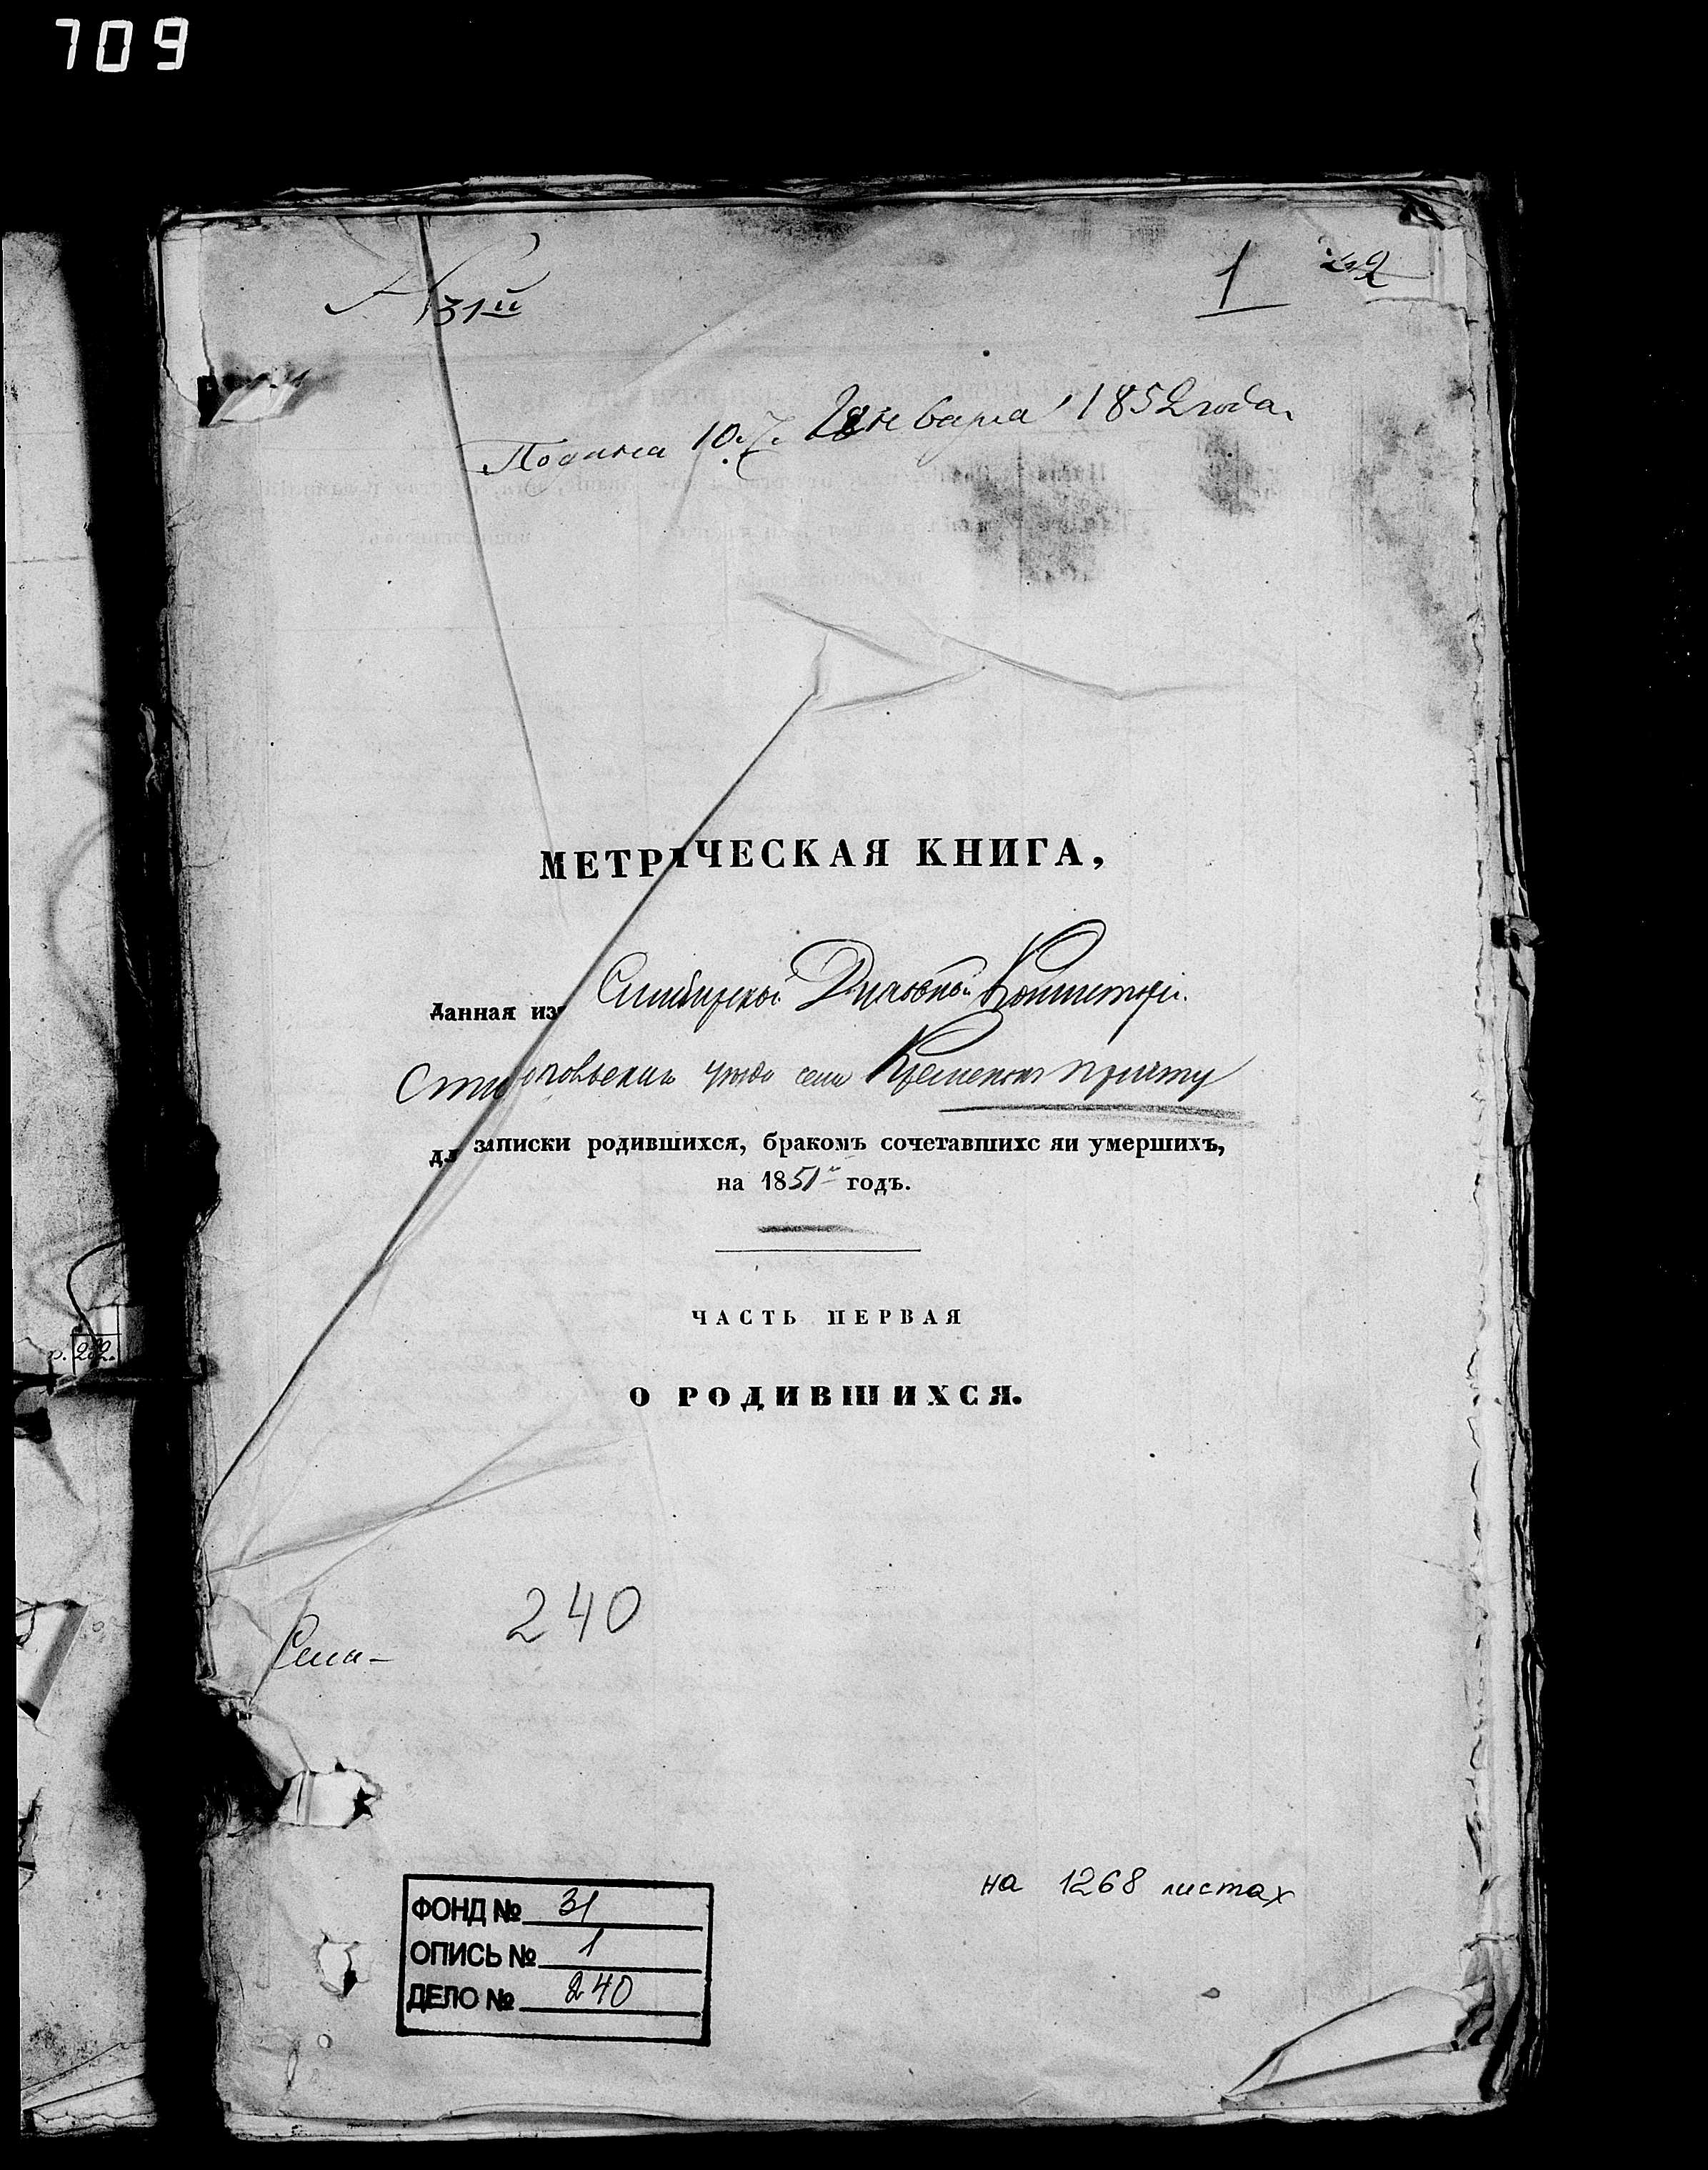 709
№ 31й
1
Подана 10. Января 1852 года.
МЕТРИЧЕСКАЯ КНИГА,
данная изъ Симбирской Духовной Консисторіи
Ставропольскаго уѣзда села Кременокъ причту
для записки родившихся, бракомъ сочетавшихс яи умершихъ,
на 1851й годъ.
ЧАСТЬ ПЕРВАЯ
О РОДИВШИХСЯ.
240
Села-
на 1268 листах
ФОНД № 31
ОПИСЬ № 1
ДЕЛО № 240